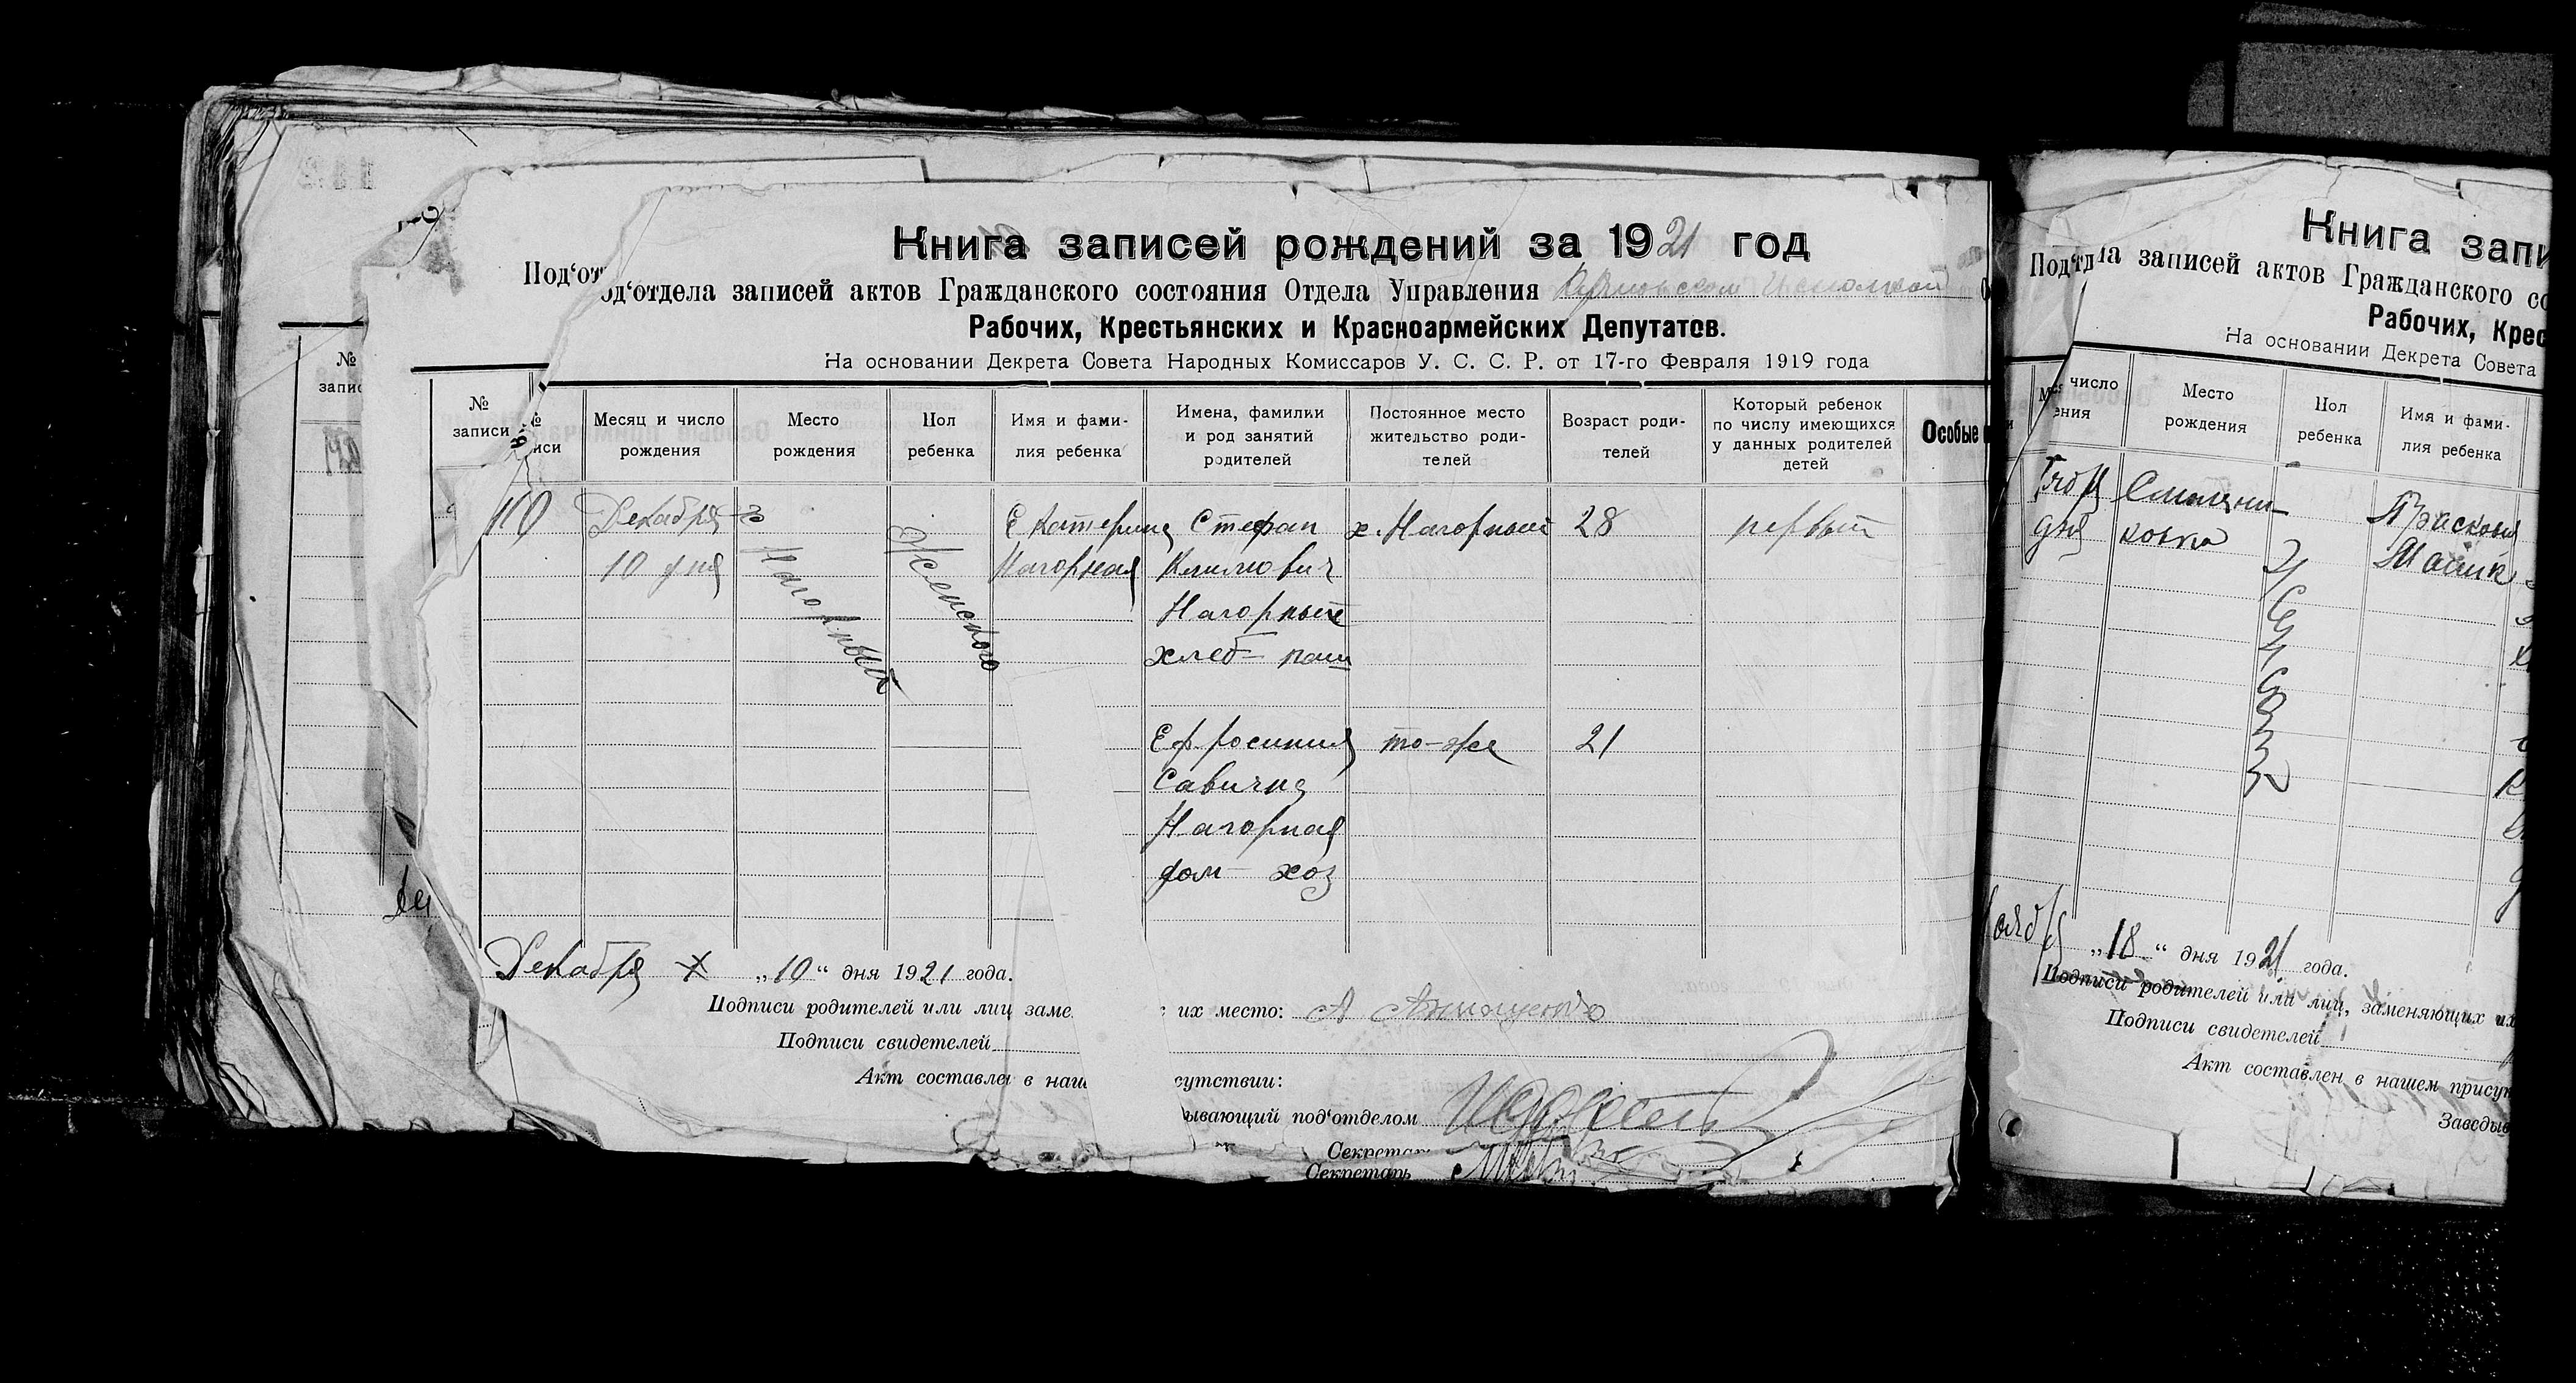 Книга записей рождений за 1921 год
Под‘от
од‘отдела записей актов Гражданского состояния Отдела Управления
Рабочих, Крестьянских и Красноармейских Депутатов.
На основании Декрета Совета Народных Комиссаров У. С. С. Р. от 17-го Февраля 1919 года
№
запис
№
записи
№
иси
Месяц и число
рождения
Место
рождения
Пол
ребенка
Имя и фами-
лия ребенка
Имена, фамилии
и род занятий
родителей
Постоянное место
жительство роди-
телей
Возраст роди-
телей
Который ребенок
по числу имеющихся
у данных родителей
детей
Особые
Декабря
10 дня
х. Нагорный
Женского
Екатерина
Нагорная
Стефан
Климович
Нагорный
хлеб- паш
х. Нагорный
28
первый
Ефросиния
Савична
Нагорная
дом- хоз
то-же
21
Декабря „10“ дня 1921 года.
Подписи родителей или лиц заме
их место:
Подписи свидетелей
Акт составлен в наше
сутствии:
ывающий под‘отделом
Секретарь
Секретарь
Книга запи
Под‘тд
ла записей актов Гражданского со
Рабочих, Крес
На основании Декрета Совета
число
ения
Место
рождения
Пол
ребенка
Имя и фами-
лия ребенка
дня
Мужского
„18“ дня 1921 года.
Подписи родителей или лиц, заменяющих их
Подписи свидетелей
Акт составлен в нашем присут
Заведыв